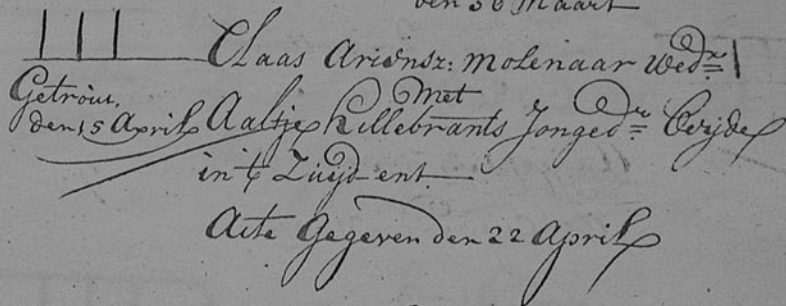 den 30 Maart
Claas Ariensz: Molenaar Wedr
Met
Getrout,
den 15 April Aaltje Hillebrants Jongedr Beijde
in 't Zuijd ent.
Acte Gegeven den 22 April